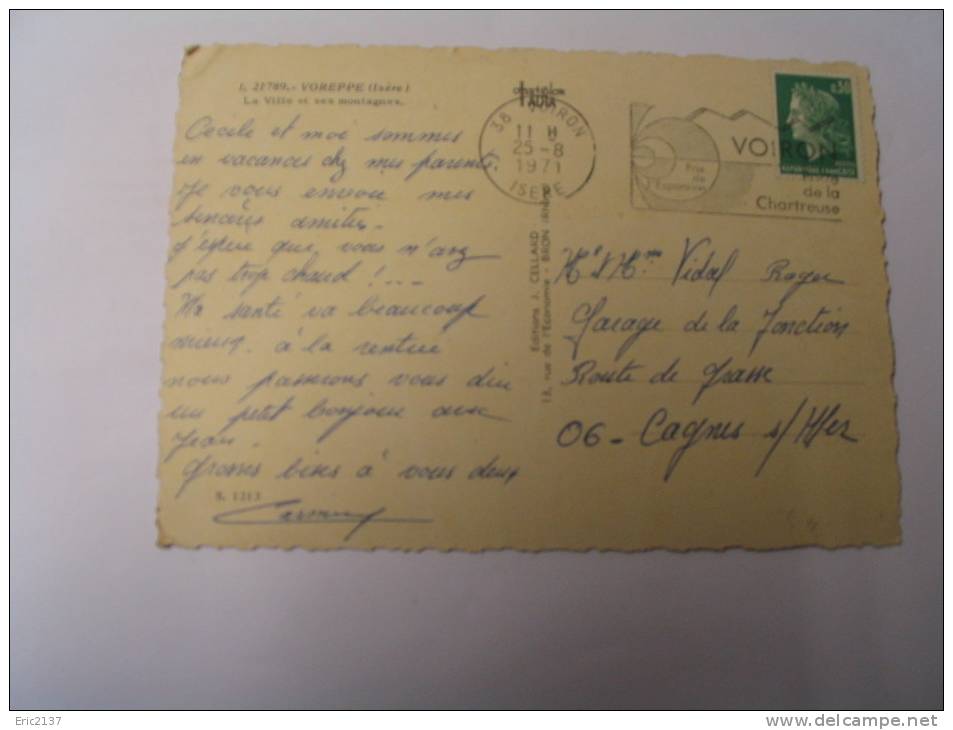 L. 21789. - VOREPPE (Isère)
La Ville et ses montagnes.
Cecile et moi sommes
en vacances chez mes parents.
Je vous envoie mes
sincères amitiés.
J'espère que vous n'avez
pas trop chaud ! ---
Ma santé va beaucoup
mieux. à la rentrée
nous passerons vous dire
un petit bonjour avec
Jean.
Grosses bises à vous deux
S. 1213
38 VOIRON
11 H
25 - 8
1971
ISERE
Editions J. CELLARD
13, rue de l'Economie - BRON (RHÔNE)
VOIRON
Prix
de
l'Expansion
de la
Chartreuse
0,30
REPUBLIQUE FRANÇAISE
Mr et Mme Vidal Roger
Garage de la Jonction
Route de Grasse
06 - Cagnes s/ Mer
Eric2137
www.delcampe.net